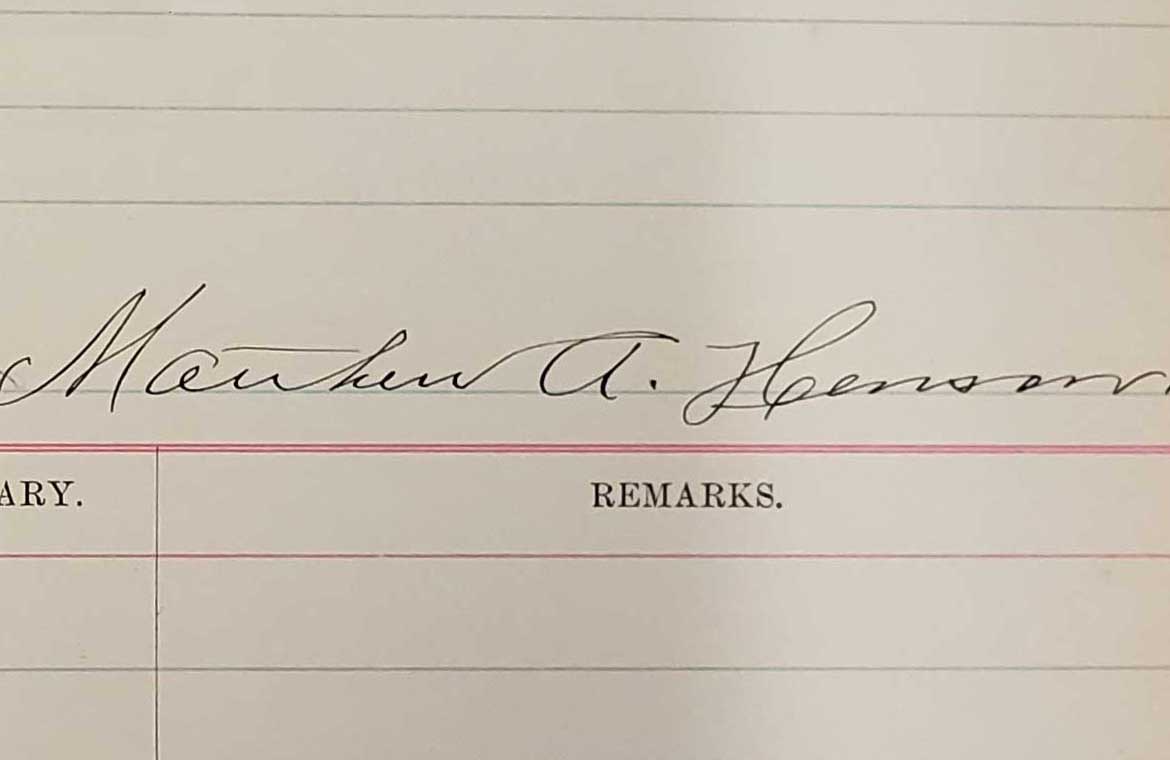 Matthew A. Henson.
ARY.
REMARKS.